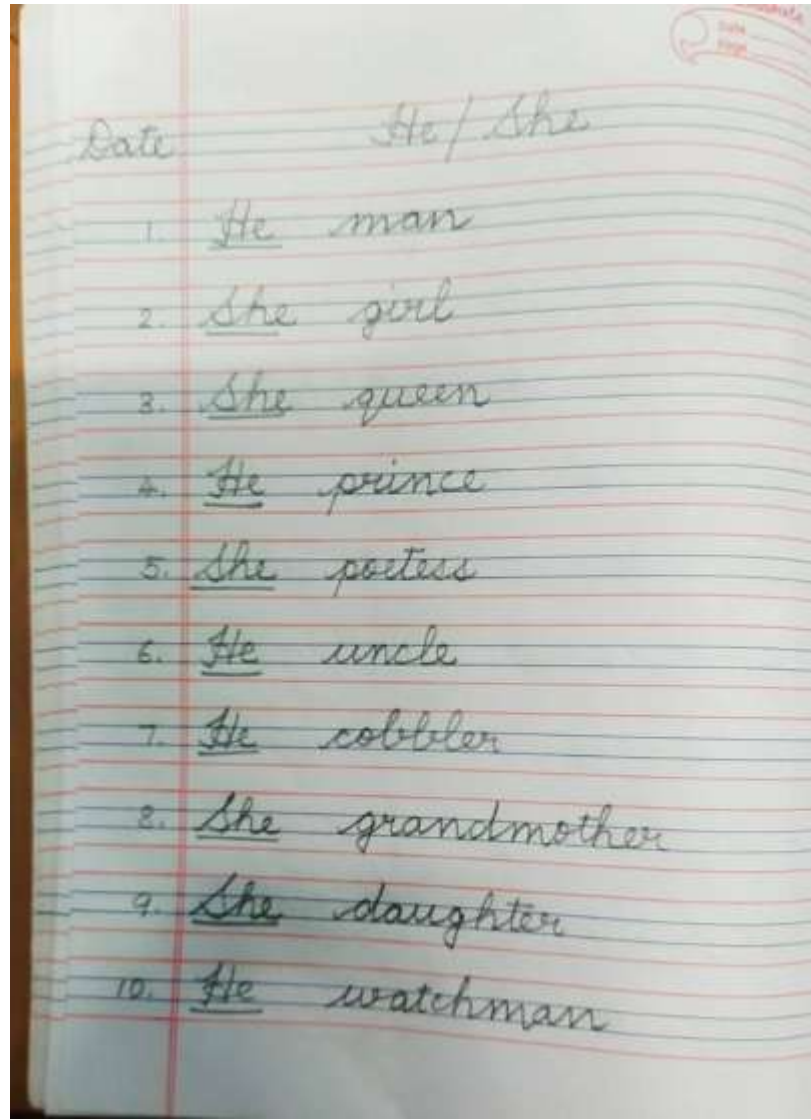 Date
Page
Date He/She
1. He man
2. She girl
3. She queen
4. He prince
5. She poetess
6. He uncle
7. He cobbler
8. She grandmother
9. She daughter
10. He watchman